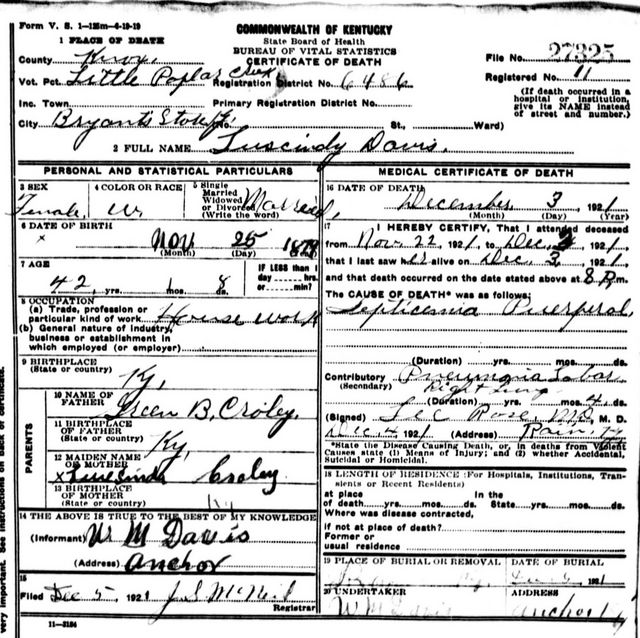 Form V. S. 1—125m—4-19-19
COMMONWEALTH OF KENTUCKY
State Board of Health
BUREAU OF VITAL STATISTICS
CERTIFICATE OF DEATH
1 PLACE OF DEATH
County Knox
File No. 27325
Vot. Pct. Little Poplar Creek Registration District No. 6486
Registered No. 11
Inc. Town Primary Registration District No.
(If death occurred in a hospital or institution, give its NAME instead of street and number.)
City Bryants Store Ky No. St., Ward)
2 FULL NAME Luscindy Davis.
PERSONAL AND STATISTICAL PARTICULARS
3 SEX Female
4 COLOR OR RACE W
5 Single Married Widowed or Divorced (Write the word) Married
6 DATE OF BIRTH
Nov 25
(Month) (Day)
7 AGE
42 yrs. 1 mos. 8 ds.
IF LESS than 1 day hrs. or min.?
8 OCCUPATION
(a) Trade, profession or particular kind of work House work
(b) General nature of industry, business or establishment in which employed (or employer)
9 BIRTHPLACE
(State or country) Ky.
PARENTS
10 NAME OF FATHER Green B. Croley.
11 BIRTHPLACE OF FATHER
(State or country) Ky.
12 MAIDEN NAME OF MOTHER
Croley
13 BIRTHPLACE OF MOTHER
(State or country) Ky
14 THE ABOVE IS TRUE TO THE BEST OF MY KNOWLEDGE
(Informant) W M Davis
(Address) Anchor
15
Filed Dec 5, 1921 J.S. McNeil
Registrar
11—3184
MEDICAL CERTIFICATE OF DEATH
16 DATE OF DEATH
December 3, 1921
(Month) (Day) (Year)
17 I HEREBY CERTIFY, That I attended deceased
from Nov. 22, 1921, to Dec. 3, 1921
that I last saw her alive on Dec. 3, 1921
and that death occurred on the date stated above at 8 P.m.
The CAUSE OF DEATH* was as follows:
Septicemia Puerperal,
(Duration) yrs. mos. ds.
Contributory Pneumonia Lobar
(Secondary) Right Lung
(Duration) yrs. mos. 4 ds.
(Signed) Lee Rose, MD, M. D.
Dec 4, 1921 (Address)
*State the Disease Causing Death, or, in deaths from Violent Causes state (1) Means of Injury; and (2) whether Accidental, Suicidal or Homicidal.
18 LENGTH OF RESIDENCE (For Hospitals, Institutions, Transients or Recent Residents)
at place of death yrs. mos. ds. In the State yrs. mos. ds.
Where was disease contracted,
if not at place of death?
Former or usual residence
19 PLACE OF BURIAL OR REMOVAL
DATE OF BURIAL
Ky. 1921
20 UNDERTAKER
W M Davis
ADDRESS
Anchor Ky
very important. See instructions on back of certificate.